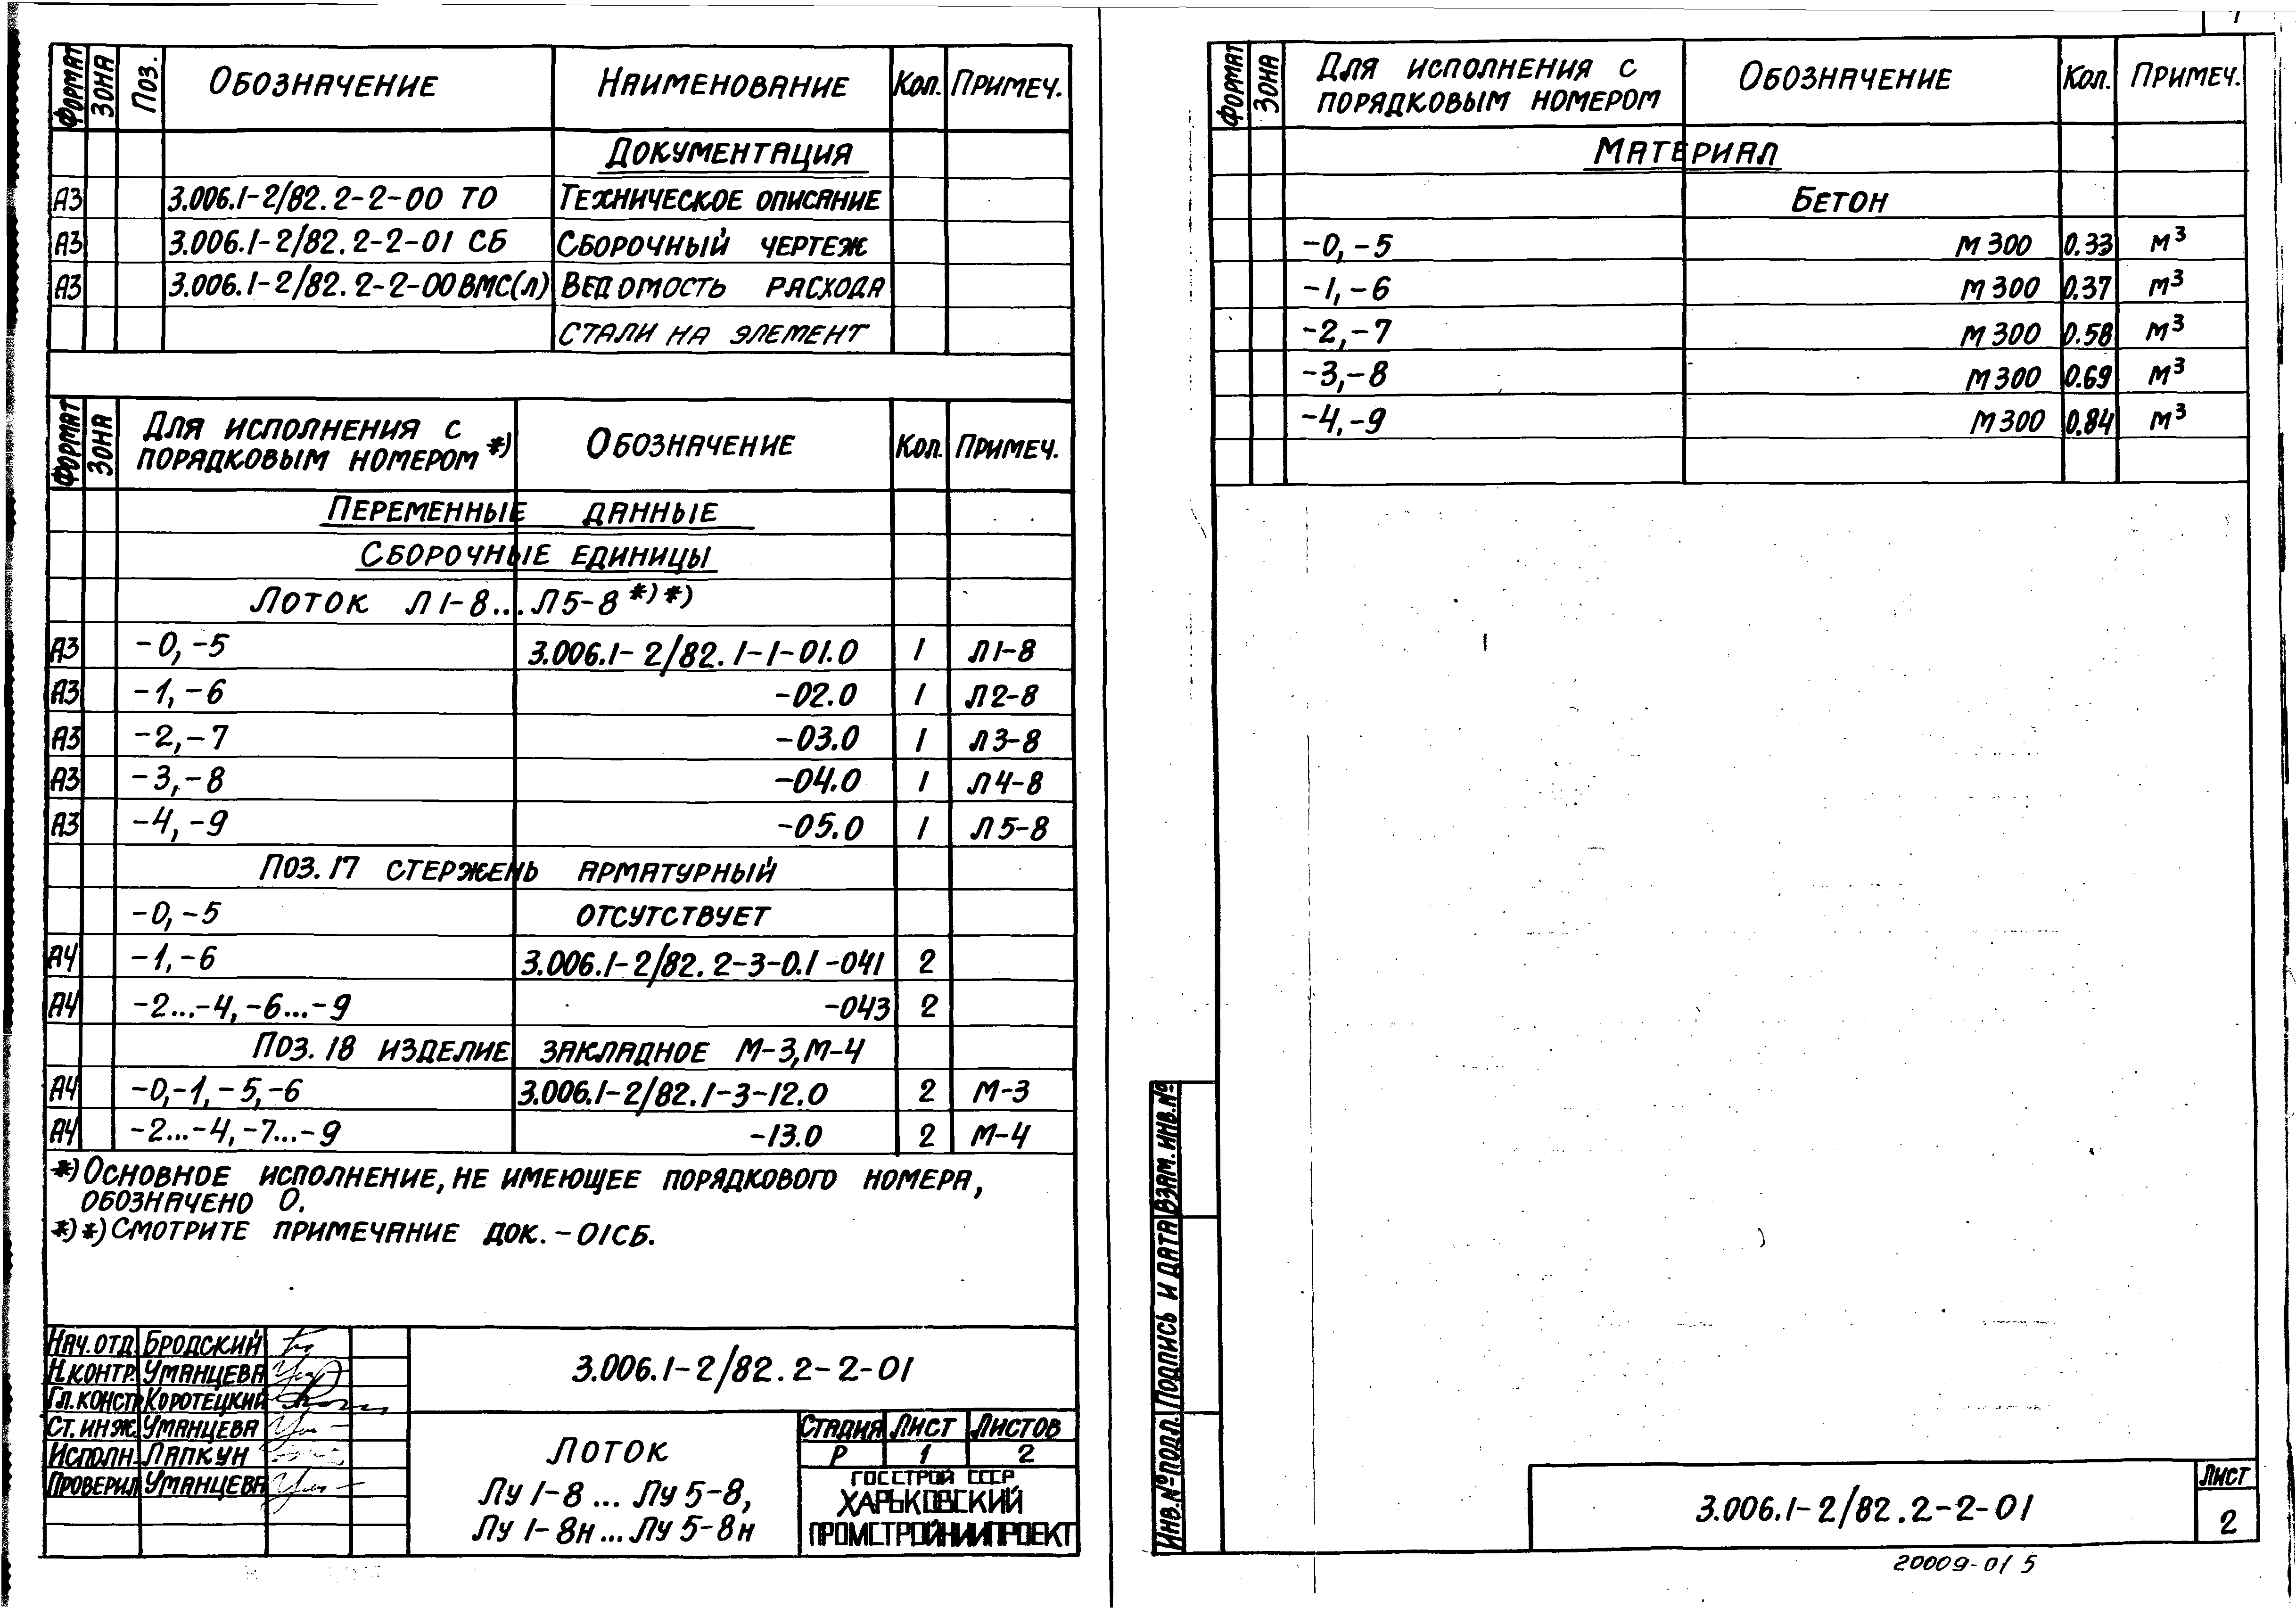 ФОРМАТ ЗОНА Поз. ОБОЗНАЧЕНИЕ НАИМЕНОВАНИЕ Кол. ПРИМЕЧ.
ДОКУМЕНТАЦИЯ
А3 3.006.1-2/82.2-2-00 ТО ТЕХНИЧЕСКОЕ ОПИСАНИЕ
А3 3.006.1-2/82.2-2-01 СБ СБОРОЧНЫЙ ЧЕРТЕЖ
А3 3.006.1-2/82.2-2-00ВМС(Л) ВЕДОМОСТЬ РАСХОДА
СТАЛИ НА ЭЛЕМЕНТ
ФОРМАТ ЗОНА ДЛЯ ИСПОЛНЕНИЯ С ПОРЯДКОВЫМ НОМЕРОМ *) ОБОЗНАЧЕНИЕ Кол. ПРИМЕЧ.
ПЕРЕМЕННЫЕ ДАННЫЕ
СБОРОЧНЫЕ ЕДИНИЦЫ
ЛОТОК Л1-8...Л5-8 *)*)
А3 -0,-5 3.006.1-2/82.1-1-01.0 1 Л1-8
А3 -1,-6 -02.0 1 Л2-8
А3 -2,-7 -03.0 1 Л3-8
А3 -3,-8 -04.0 1 Л4-8
А3 -4,-9 -05.0 1 Л5-8
ПОЗ.17 СТЕРЖЕНЬ АРМАТУРНЫЙ
-0,-5 ОТСУТСТВУЕТ
А4 -1,-6 3.006.1-2/82.2-3-0.1-041 2
А4 -2...-4,-6...-9 -043 2
ПОЗ.18 ИЗДЕЛИЕ ЗАКЛАДНОЕ М-3,М-4
А4 -0,-1,-5,-6 3.006.1-2/82.1-3-12.0 2 М-3
А4 -2...-4,-7...-9 -13.0 2 М-4
*) ОСНОВНОЕ ИСПОЛНЕНИЕ, НЕ ИМЕЮЩЕЕ ПОРЯДКОВОГО НОМЕРА,
ОБОЗНАЧЕНО 0.
*)*) СМОТРИТЕ ПРИМЕЧАНИЕ ДОК.-01СБ.
НАЧ.ОТД. БРОДСКИЙ
Н.КОНТР. УМАНЦЕВА
ГЛ.КОНСТР КОРОТЕЦКИЙ
СТ.ИНЖ. УМАНЦЕВА
ИСПОЛН. ЛАПКУН
ПРОВЕРИЛ УМАНЦЕВА
3.006.1-2/82.2-2-01
ЛОТОК
Лу 1-8 ... Лу 5-8,
Лу 1-8н ... Лу 5-8н
СТАДИЯ ЛИСТ ЛИСТОВ
Р 1 2
ГОССТРОЙ СССР
ХАРЬКОВСКИЙ
ПРОМСТРОЙНИИПРОЕКТ
ФОРМАТ ЗОНА ДЛЯ ИСПОЛНЕНИЯ С ПОРЯДКОВЫМ НОМЕРОМ ОБОЗНАЧЕНИЕ Кол. ПРИМЕЧ.
МАТЕРИАЛ
БЕТОН
-0,-5 М300 0.33 М³
-1,-6 М300 0.37 М³
-2,-7 М300 0.58 М³
-3,-8 М300 0.69 М³
-4,-9 М300 0.84 М³
ИНВ.№ПОДЛ. ПОДПИСЬ И ДАТА ВЗАМ.ИНВ.№
3.006.1-2/82.2-2-01
ЛИСТ
2
20009-01 5